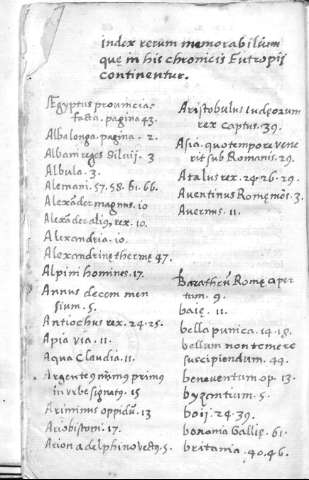 index rerum memorabilium
que in his chronicis Eutropij
continentur.
Ægyptus prouincias
facta. pagina 43.
Alba longa. pagina. 2.
Albani reges Siluij. 3
Albula. 3.
Alemani. 57. 58. 61. 66.
Alexãder magnus. 10
Alexãder aliq, rex. 10.
Alexandria. 10.
Alexandrine therme 47.
Alpini homines. 17.
Annus decem men
sium. 5.
Antiochus rex. 24. 25.
Apia via. 11.
Aqua Claudia. 11.
Argenteº nũmus primus
in vrbe signatº. 15
Ariminus oppidũ. 13
Ariobistoni. 17.
Arion a delphino vectº. 5.
Aristobulus iudeorum
rex captus. 39.
Asia. quo tempore vene
rit sub Romanis. 29.
Atalus rex. 24. 26. 29.
Auentinus Rome mõs. 3.
Auernus. 11.
Barathrũ Rome aper
tum. 9.
baie. 11.
bella punica. 14. 18.
bellum non temere
suscipiendum. 44.
beneuentum op. 13
byzantium. 5.
boij. 24. 39.
bononia Gallie. 61.
britania. 40. 46.